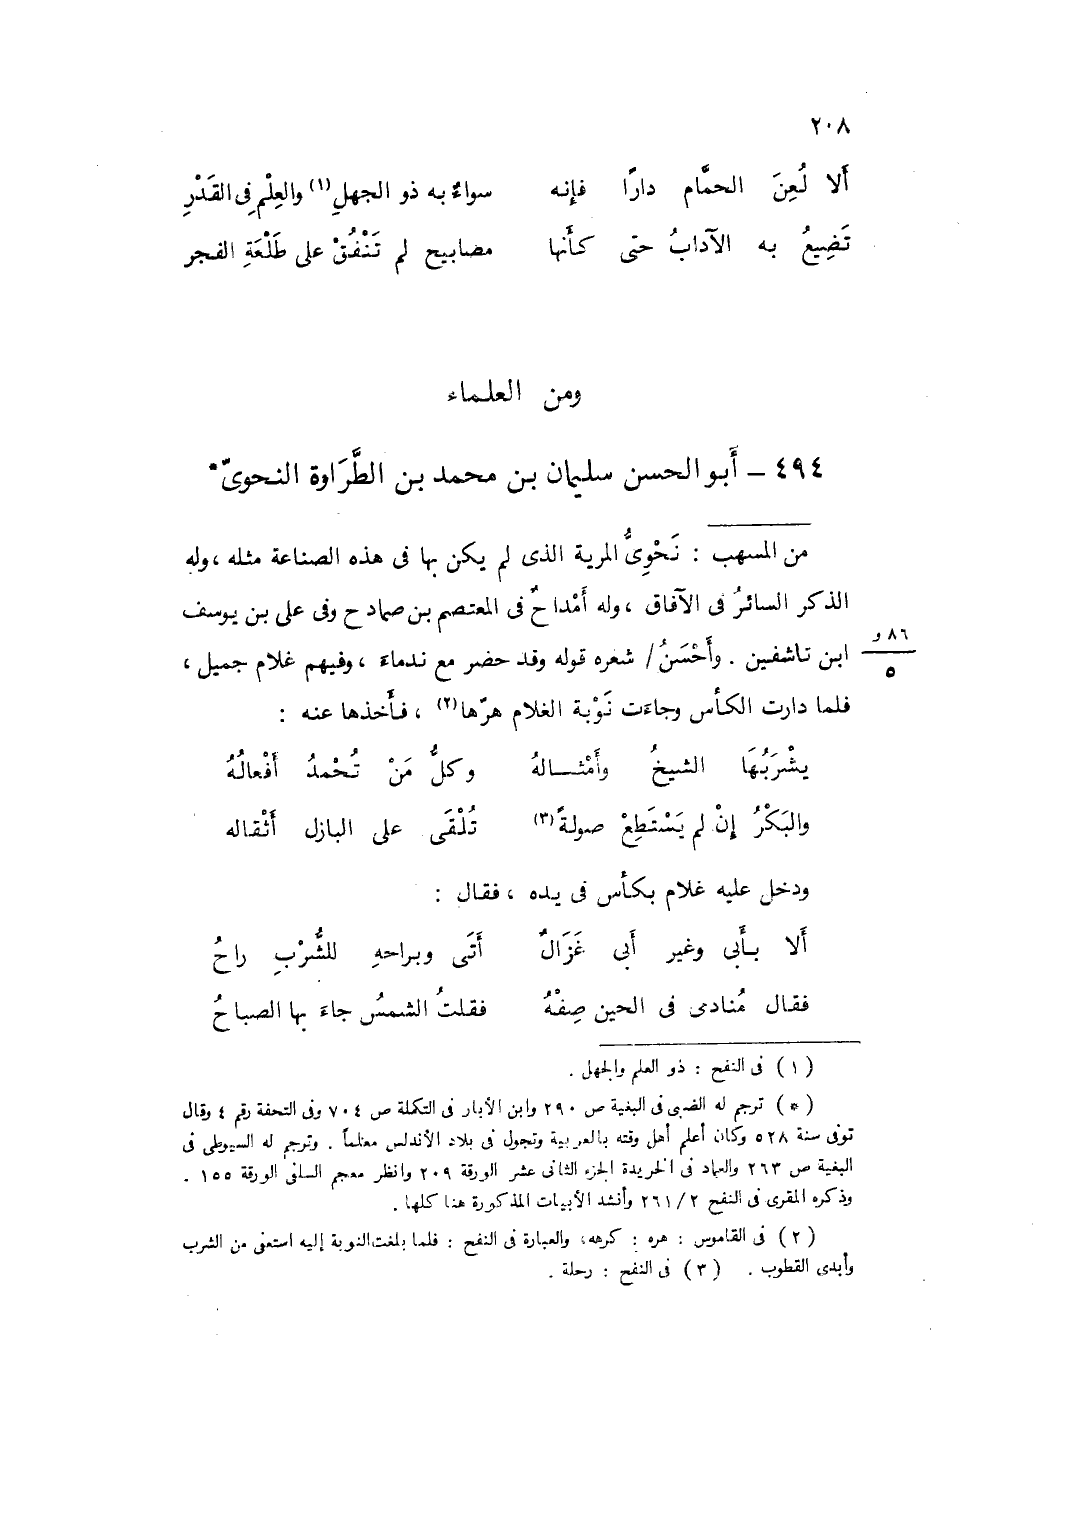 ٢٠٨
أَلا لُعِنَ الحمَّام دارًا فإنه سواءٌ به ذو الجهلِ(١) والعِلْمِ فى القَدْرِ
تَضِيعُ به الآدابُ حتى كأَنها مصابيح لم تَنْفُقْ على طَلْعَةِ الفجر
ومن العلماء
٤٩٤ – أَبو الحسن سليمان بن محمد بن الطَّرَاوة النحوىّ*
من المسهب : نَحْوِىُّ المرية الذى لم يكن بها فى هذه الصناعة مثله ، وله
الذكر السائرُ فى الآفاق ، وله أَمْداحٌ فى المعتصم بن صمادح وفى على بن يوسف
ابن تاشفين . وأَحْسَنُ / شعره قوله وقد حضر مع ندماءَ ، وفيهم غلام جميل ،
٨٦ و
٥
فلما دارت الكأس وجاءَت نَوْبة الغلام هرّها(٢) ، فأَخذها عنه :
يشْرَبُهَا الشيخُ وأَمْثـالهُ وكلُّ مَنْ تُحْمدُ أَفْعالُهُ
والبَكْرُ إِنْ لم يَسْتَطِعْ صولةً(٣) تُلْقَى على البازل أَثْقاله
ودخل عليه غلام بكأس فى يده ، فقال :
أَلا بأَبى وغير أَبى غَزَالٌ أَتَى وبراحهِ للشُّرْبِ راحُ
فقال مُنادى فى الحين صِفْهُ فقلتُ الشمسُ جاءَ بها الصباحُ
(١) فى النفح : ذو العلم والجهل .
(*) ترجم له الضبى فى البغية ص ٢٩٠ وابن الأبار فى التكملة ص ٧٠٤ وفى التحفة رقم ٤ وقال
توفى سنة ٥٢٨ وكان أعلم أهل وقته بالعربية وتجول فى بلاد الأندلس معلماً . وترجم له السيوطى فى
البغية ص ٢٦٣ والعماد فى الخريدة الجزء الثانى عشر الورقة ٢٠٩ وانظر معجم السلفى الورقة ١٥٥ .
وذكره المقرى فى النفح ٢/٢٦١ وأنشد الأبيات المذكورة هنا كلها .
(٢) فى القاموس : هره : كرهه، والعبارة فى النفح : فلما بلغت النوبة إليه استعفى من الشرب
وأبدى القطوب . (٣) فى النفح : رحلة .